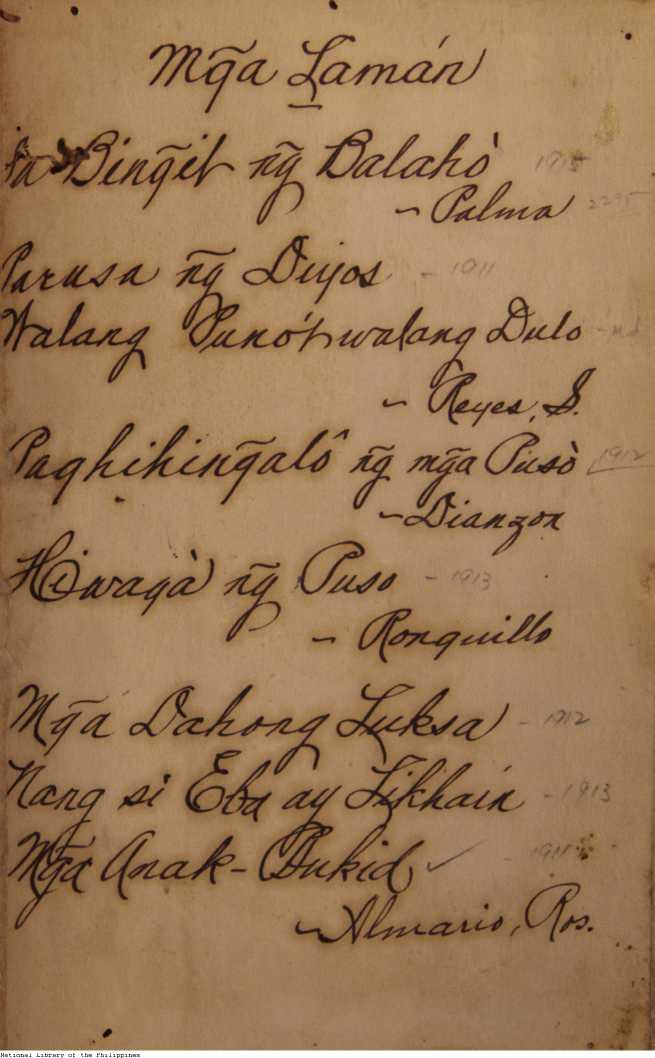 Mg̃a Lamán
Sa Bing̃it ng̃ Balahò 1915
- Palma 2295
Parusa ng̃ Diyos - 1911
Walang Puno't walang Dulo - nd
- Reyes, S.
Paghihing̃alô ng̃ mg̃a Pusò 1912
- Dianzon
Hiwagà ng̃ Puso - 1913
- Ronquillo
Mg̃a Dahong Luksa - 1912
Nang si Eba ay Likhain - 1913
Mg̃a Anak-Bukid - 1911
- Almario, Ros.
National Library of the Philippines